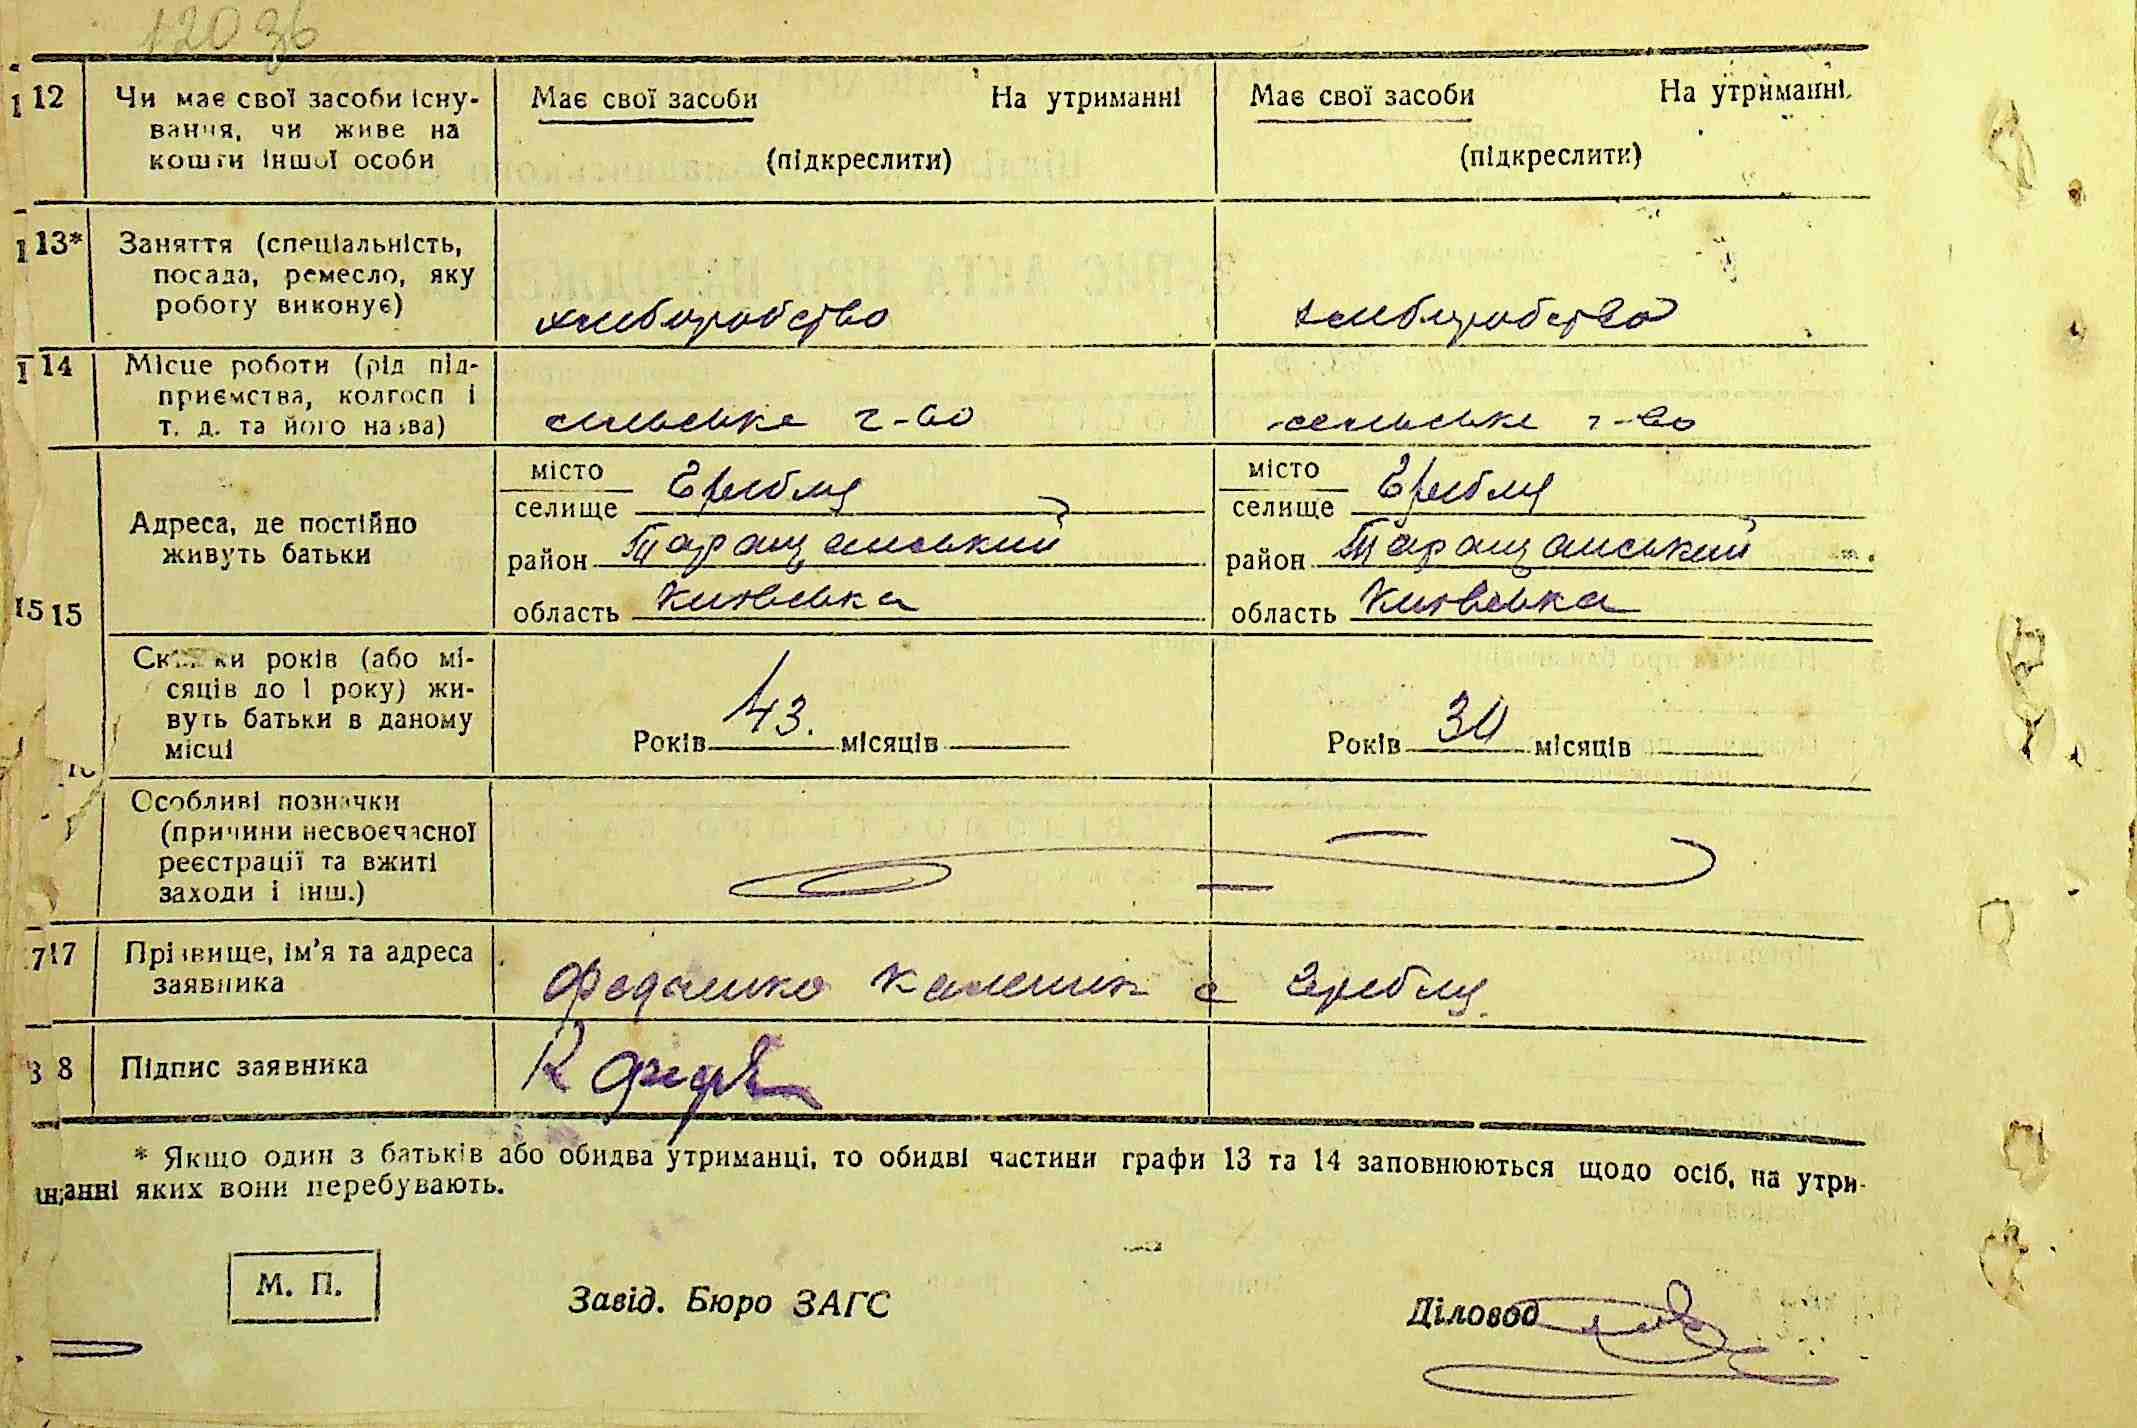 120 зв
12 Чи має свої засоби існу- Має свої засоби На утриманні Має свої засоби На утриманні
вання, чи живе на
кошти іншої особи (підкреслити) (підкреслити)
13* Заняття (спеціальність,
посада, ремесло, яку
роботу виконує) хліборобство хліборобство
14 Місце роботи (рід під-
приємства, колгосп і
т. д. та його назва) сільське г-во сільське г-во
15 15 Адреса, де постійно
живуть батьки
місто
селище
район Таращанський
область Київська
місто
селище
район Таращанський
область Київська
Скільки років (або мі-
сяців до 1 року) жи-
вуть батьки в даному
місці
Років 43. місяців Років місяців
Особливі позначки
(причини несвоєчасної
реєстрації та вжиті
заходи і інш.)
17 Прізвище, ім'я та адреса
заявника
8 Підпис заявника
* Якщо один з батьків або обидва утриманці, то обидві частини графи 13 та 14 заповнюються щодо осіб, на утри-
манні яких вони перебувають.
М. П.
Завід. Бюро ЗАГС
Діловод